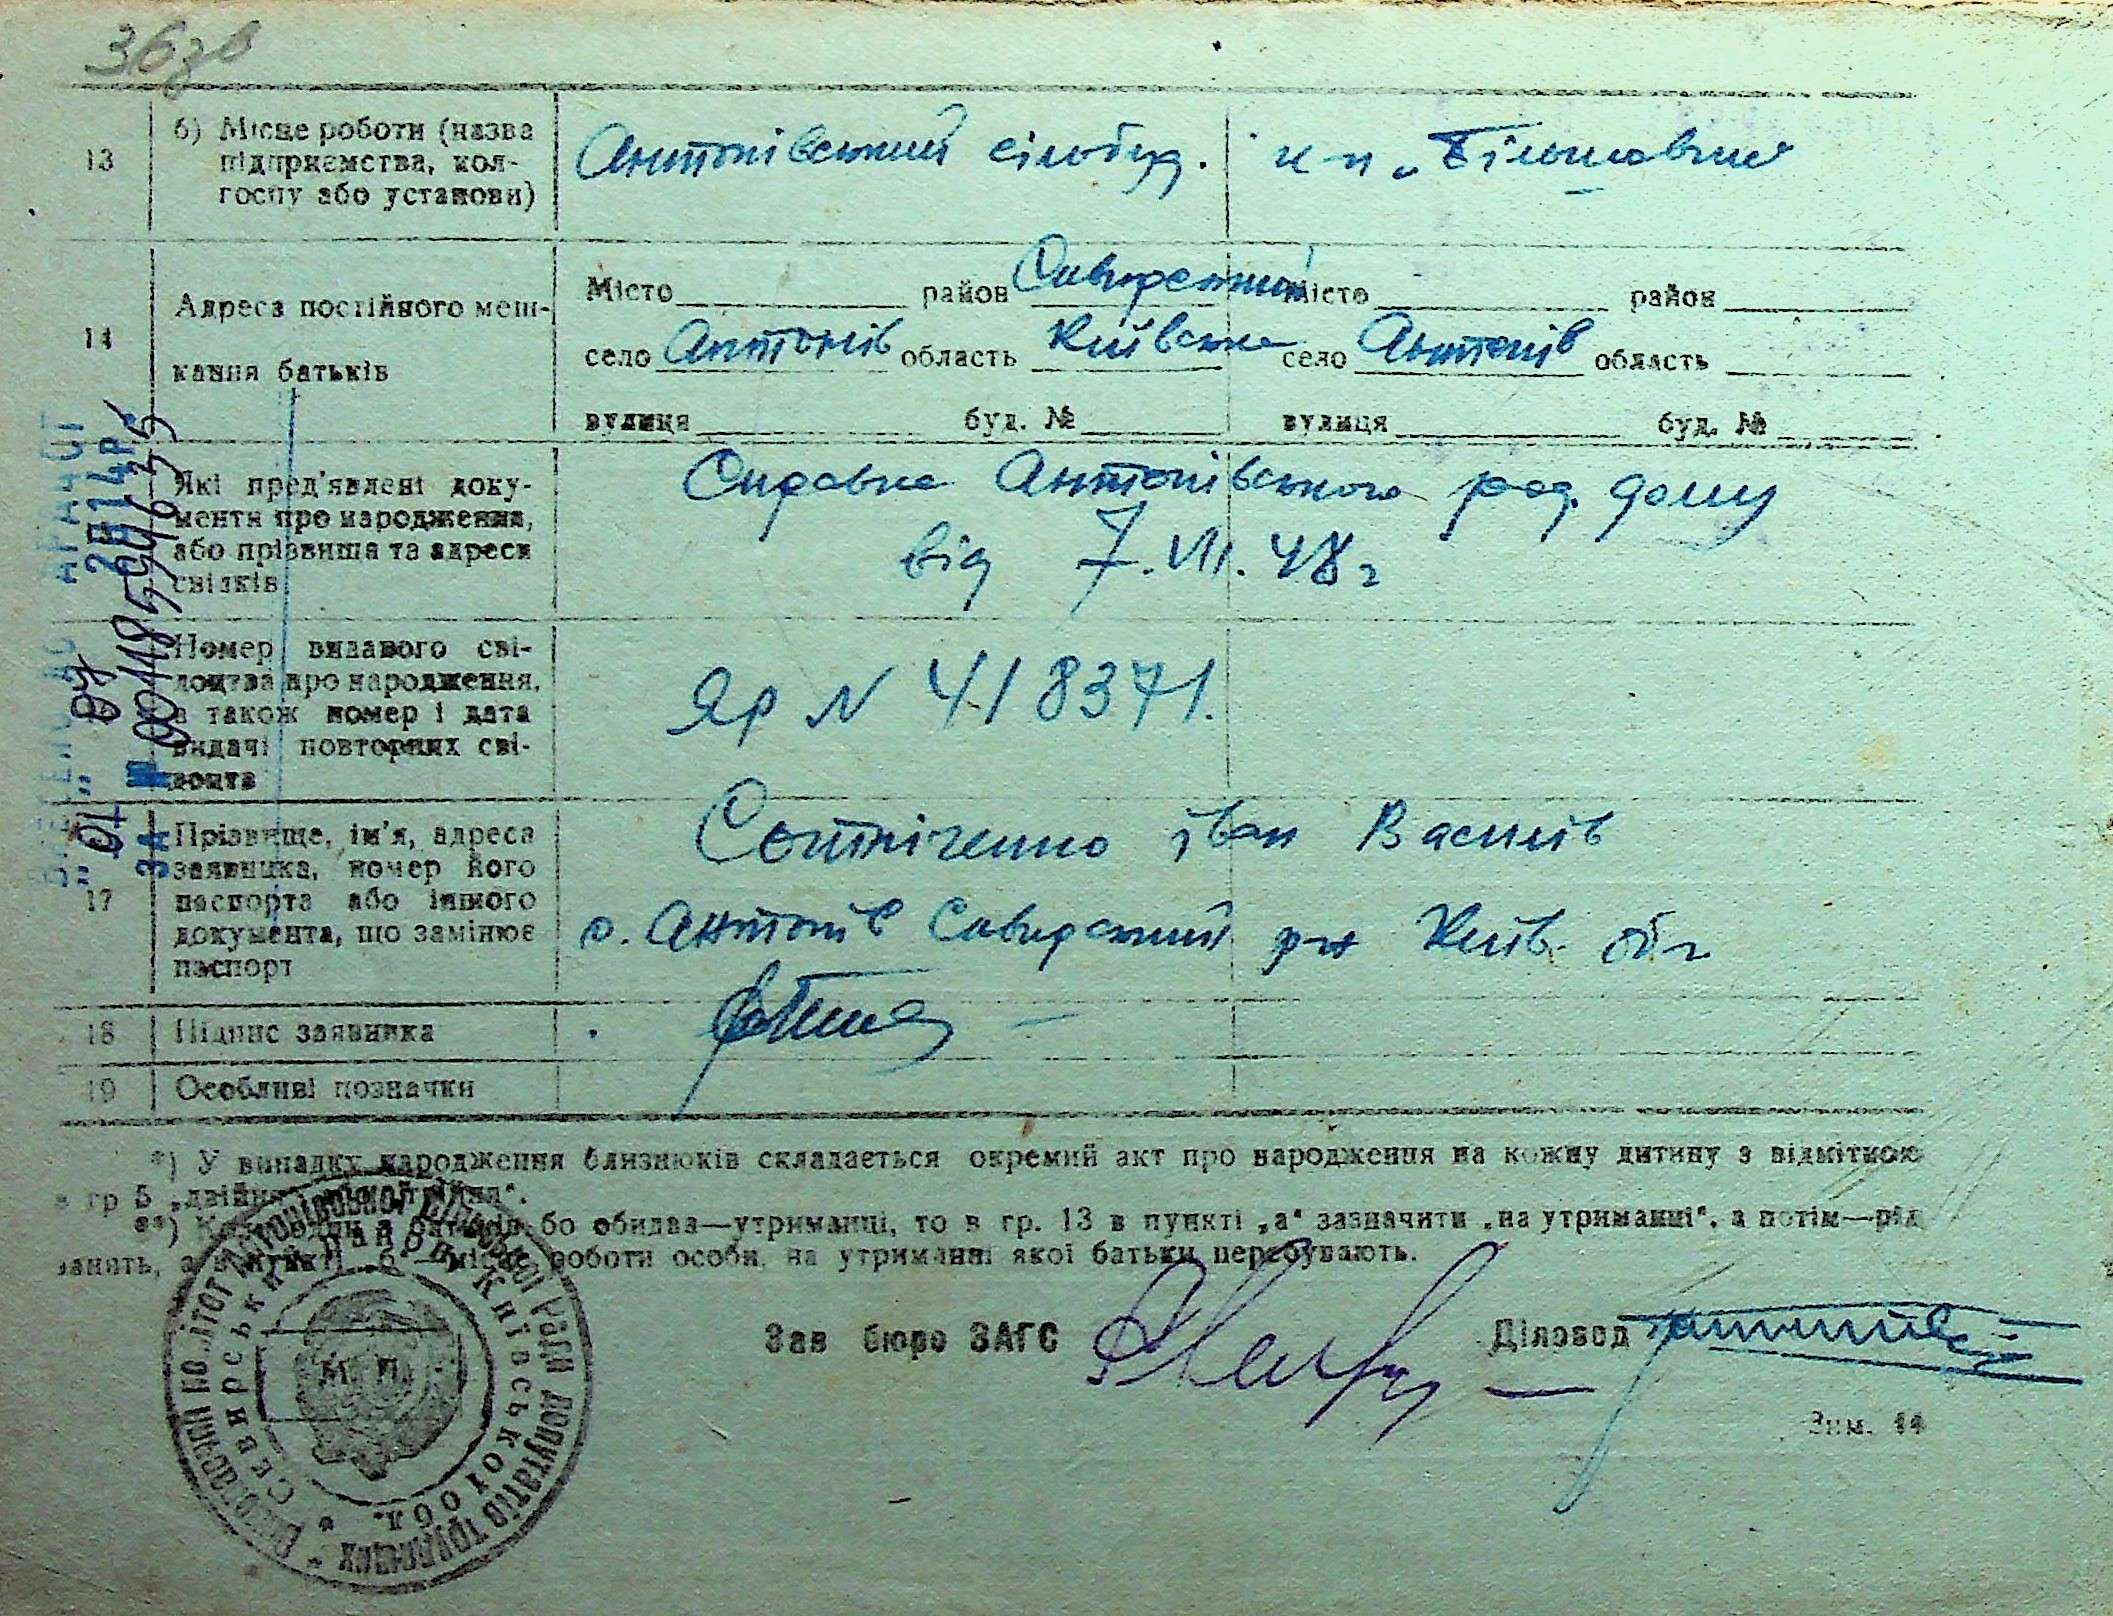 36зв
13
б) Місце роботи (назва
підприємства, кол-
госпу або установи)
Антонівський сільбуд.
к-п „Більшовик"
14
Адреса постійного меш-
кання батьків
Місто район Сквирський
село Антонів область Київська
вулиця буд. №
Місто район
село Антонів область
вулиця буд. №
Які пред'явлені доку-
менти про народження,
або прізвища та адреси
свідків
Справка Антонівського род. дому
від 7.VII.48 г
Номер виданого сві-
доцтва про народження,
а також номер і дата
видачі повторних сві-
доцтв
Яр N 418371.
17
Прізвище, ім'я, адреса
заявника, номер його
паспорта або іншого
документа, що замінює
паспорт
Сотніченко Іван Василів
с. Антонів Сквирський р-н Київ. обл.
18
Підпис заявника
19
Особливі позначки
*) У випадку народження близнюків складається окремий акт про народження на кожну дитину з відміткою
в гр 5 „двійня"
**) Коли один з батьків або обидва—утриманці, то в гр. 13 в пункті „а" зазначити „на утриманні", а потім—рід
занять, а в пункті „б"—місце роботи особи, на утриманні якої батьки перебувають.
Зав бюро ЗАГС
Діловод
М. П.
Виконавчий комітет Антонівської сільської Ради депутатів трудящих
Сквирський район Київської обл.
Зам. 44